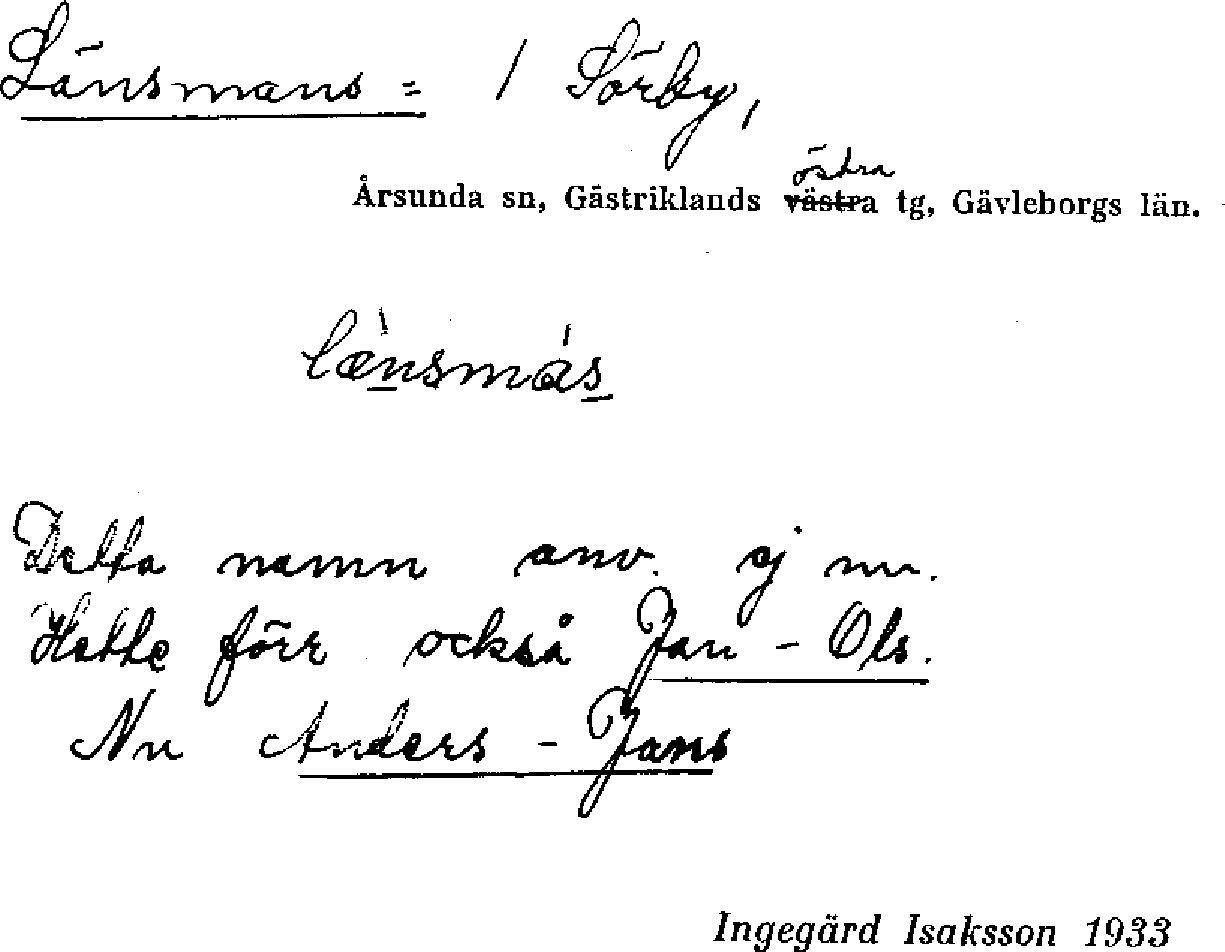 Länsmans = 1 Sörby,
östra
Årsunda sn, Gästriklands västra tg, Gävleborgs län.
læ̀nsmás
Detta namn anv. ej nu.
Hette förr också Jan - Ols.
Nu Anders - Jans
Ingegärd Isaksson 1933